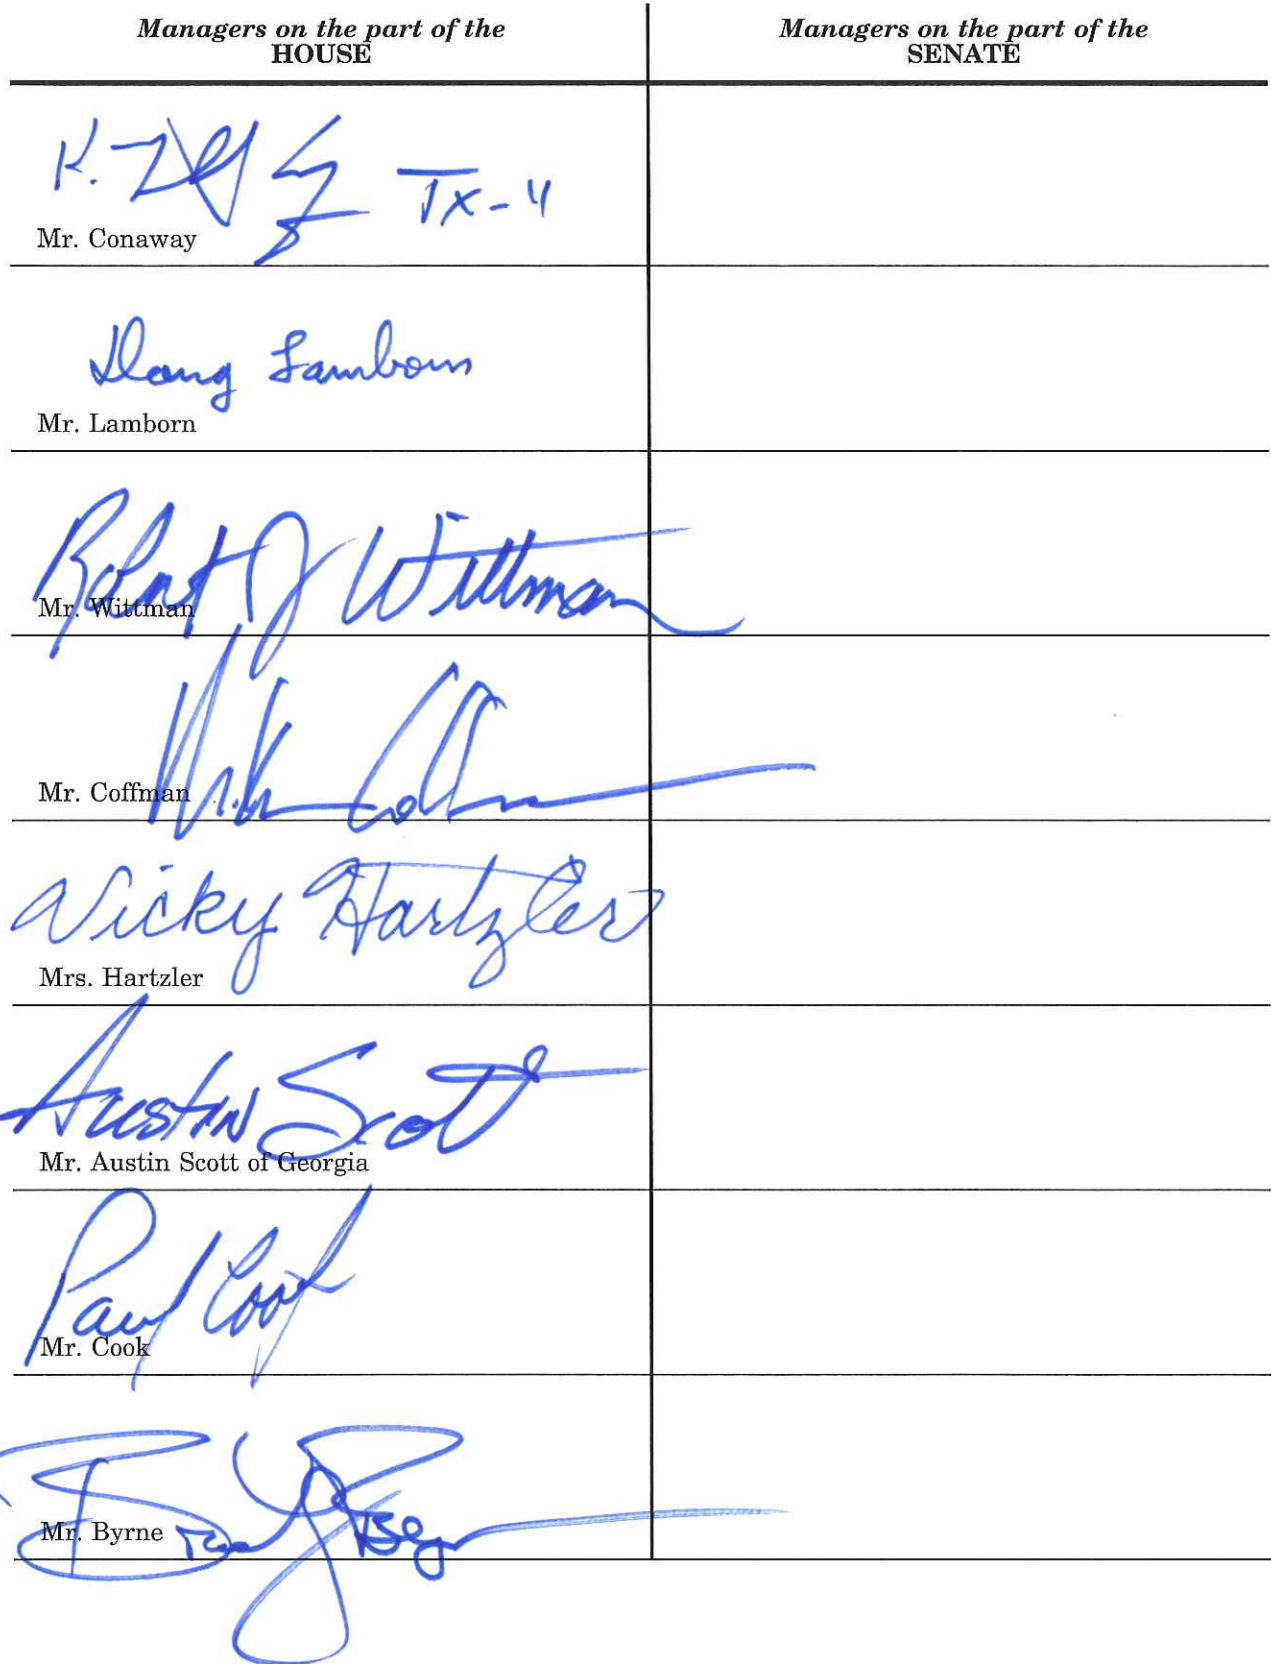 Managers on the part of the
HOUSE
Managers on the part of the
SENATE
K. TX-4
Mr. Conaway
Doug Lamborn
Mr. Lamborn
Robert J Wittman
Mr. Wittman
Mr. Coffman
Vicky Hartzler
Mrs. Hartzler
Austin Scott
Mr. Austin Scott of Georgia
Paul Cook
Mr. Cook
Mr. Byrne